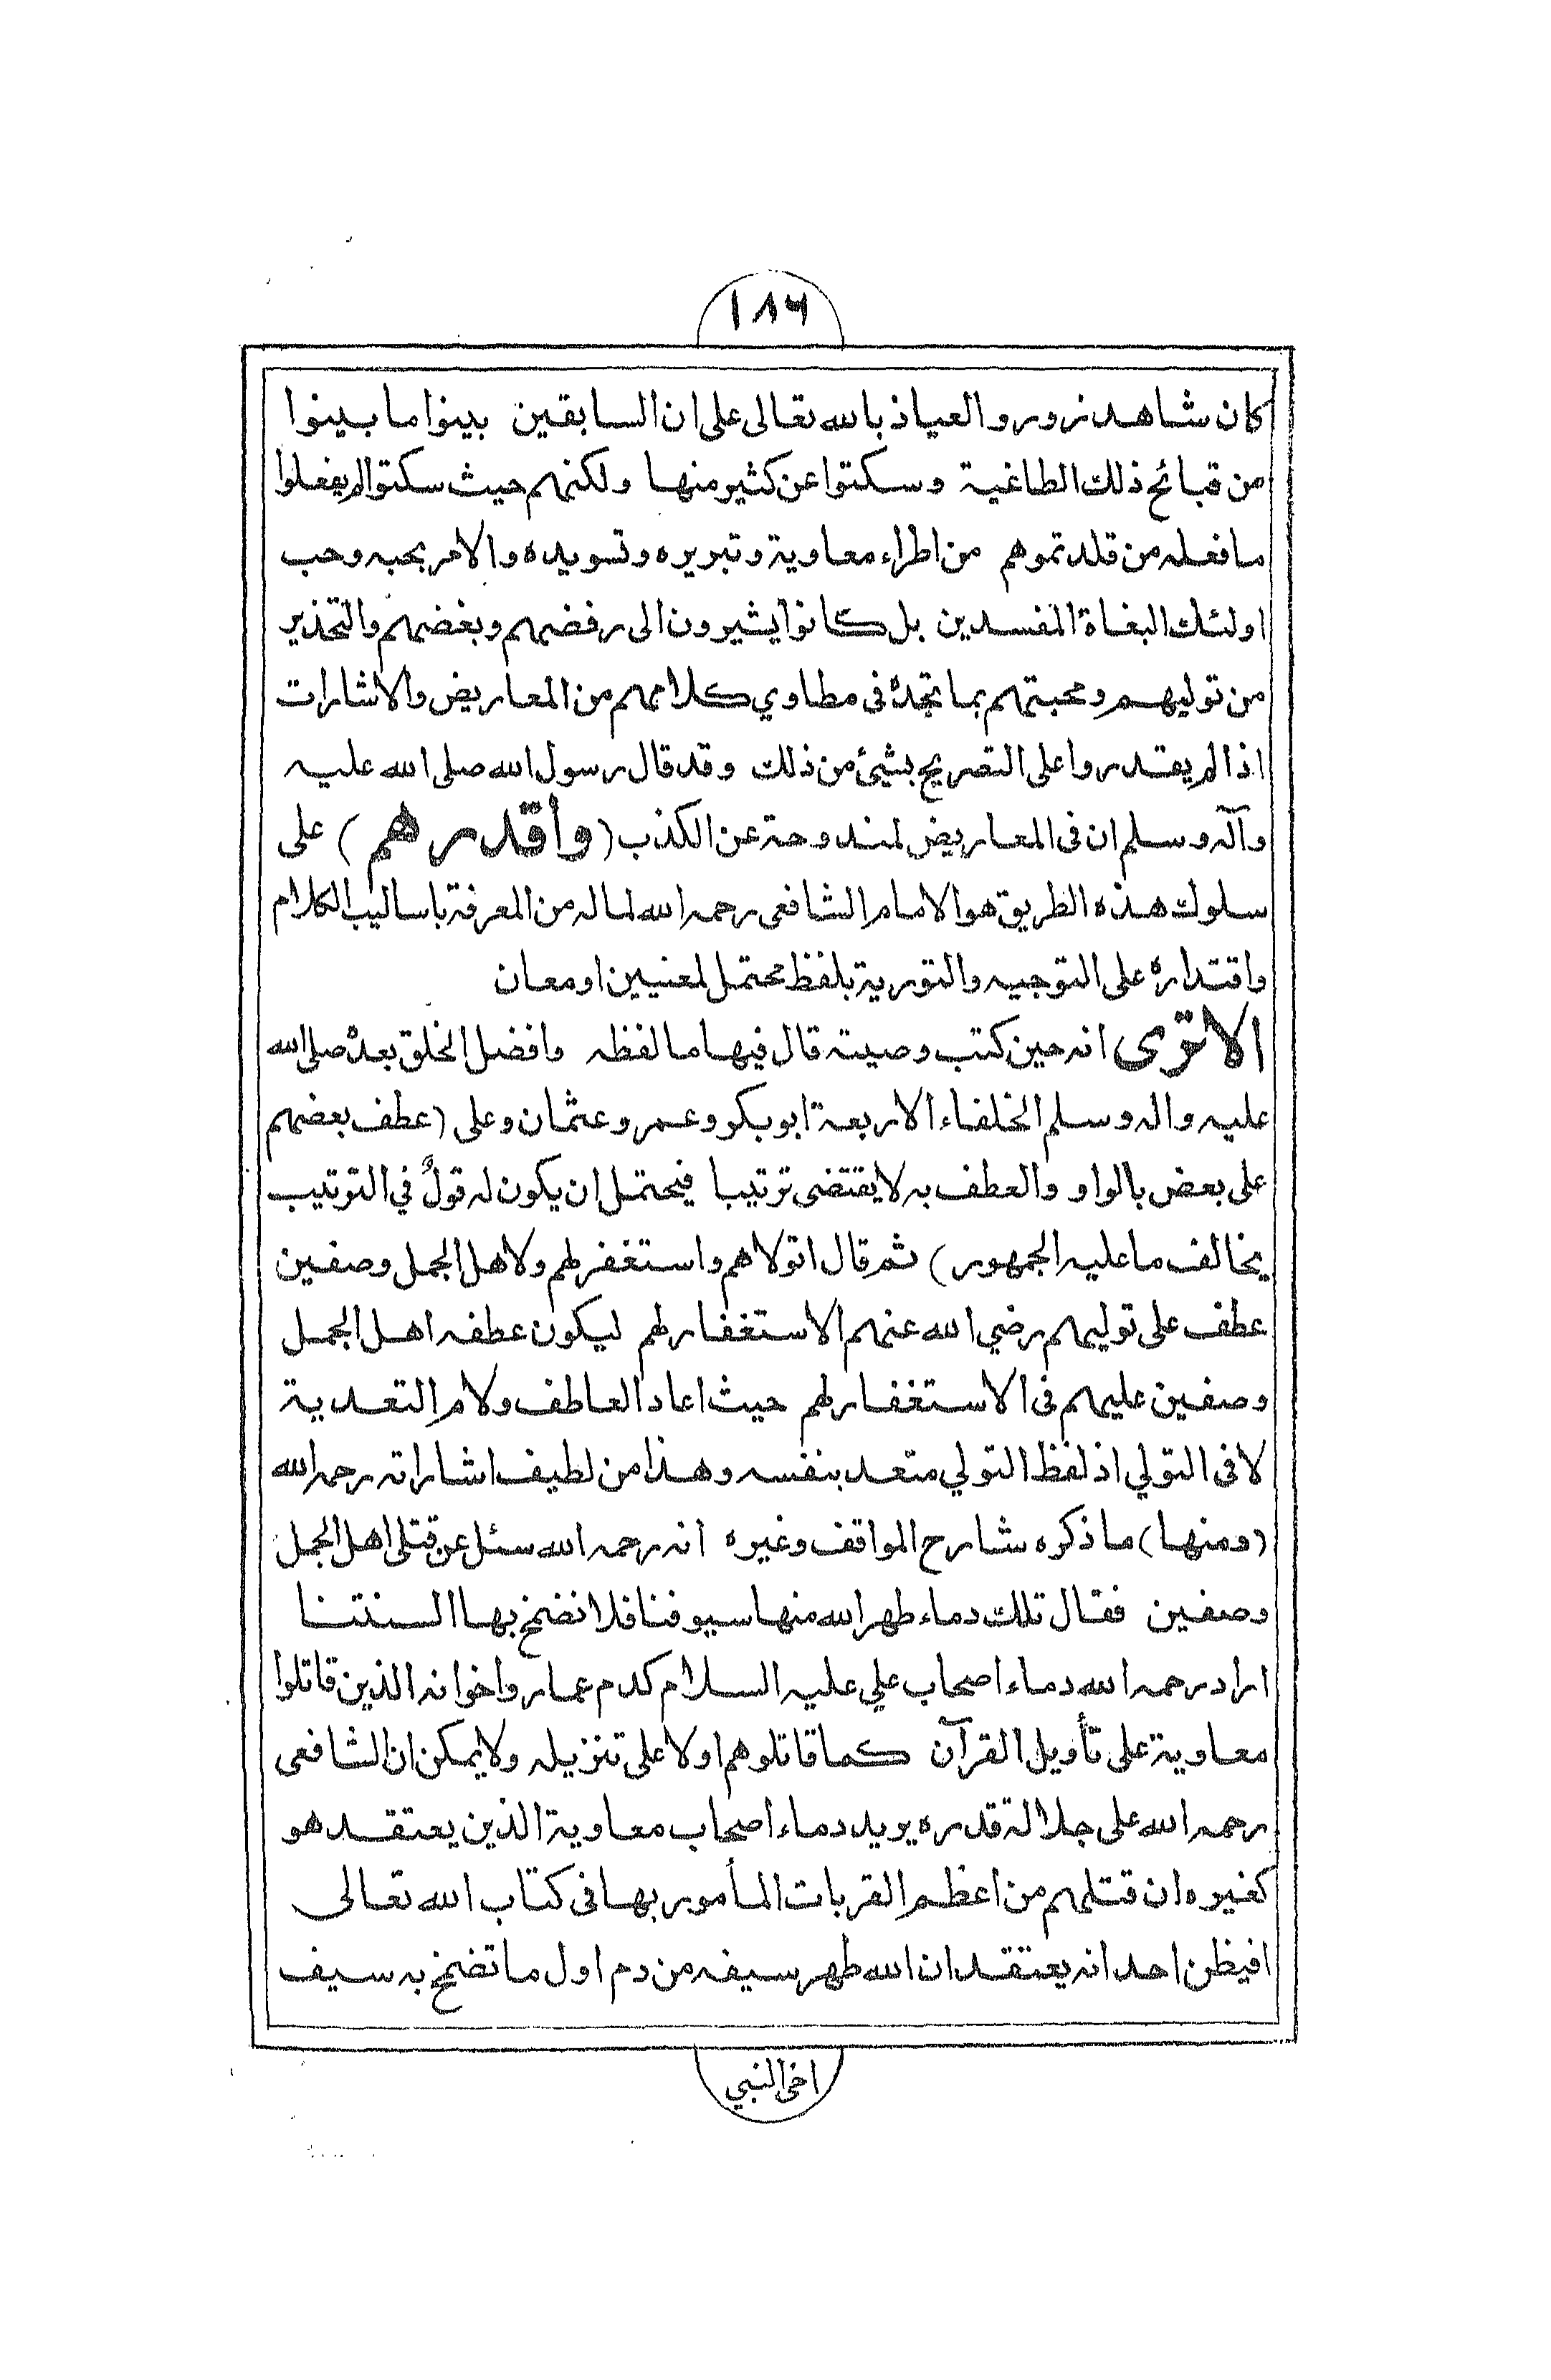 ١٨٦
كان شاهد زور والعياذ بالله تعالى على ان السابقين بينوا ما بينوا
من قبائح ذلك الطاغية وسكتوا عن كثير منها ولكنهم حيث سكتوا لم يفعلوا
ما فعله من قلدتموهم من اطراء معاوية وتبريره وتسويده والامر بحبه وحب
اولئك البغاة المفسدين بل كانوا يشيرون الى رفضهم وبغضهم والتحذير
من توليهم ومحبتهم بما تجده في مطاوي كلامهم من المعاريض والاشارات
اذا لم يقدروا على التصريح بشئ من ذلك وقد قال رسول الله صلى الله عليه
وآله وسلم ان في المعاريض لمندوحة عن الكذب (وأقدرهم) على
سلوك هذه الطريق هو الامام الشافعي رحمه الله لما له من المعرفة باساليب الكلام
واقتداره على التوجيه والتورية بلفظ محتمل لمعنيين او معان
الا ترى انه حين كتب وصيته قال فيها ما لفظه وافضل الخلق بعده صلى الله
عليه واله وسلم الخلفاء الاربعة ابو بكر وعمر وعثمان وعلي (عطف بعضهم
على بعض بالواو والعطف به لا يقتضى ترتيبا فيحتمل ان يكون له قولٌ في الترتيب
يخالف ما عليه الجمهور) ثم قال اتولاهم واستغفر لهم ولاهل الجمل وصفين
عطف على توليهم رضي الله عنهم الاستغفار لهم ليكون عطفه اهل الجمل
وصفين عليهم في الاستغفار لهم حيث اعاد العاطف ولام التعدية
لا في التولي اذ لفظ التولي متعد بنفسه وهذا من لطيف اشاراته رحمه الله
(ومنها) ما ذكره شارح المواقف وغيره انه رحمه الله سئل عن قتلى اهل الجمل
وصفين فقال تلك دماء طهر الله منها سيوفنا فلا نضمخ بها السنتنا
اراد رحمه الله دماء اصحاب علي عليه السلام كدم عمار واخوانه الذين قاتلوا
معاوية على تأويل القرآن كما قاتلوهم اولا على تنزيله ولا يمكن ان الشافعى
رحمه الله على جلالة قدره يريد دماء اصحاب معاوية الذين يعتقد هو
كغيره ان قتلهم من اعظم القربات المأمور بها في كتاب الله تعالى
افيظن احد انه يعتقد ان الله طهر سيفه من دم اول ما تضمخ به سيف
اخى النبي